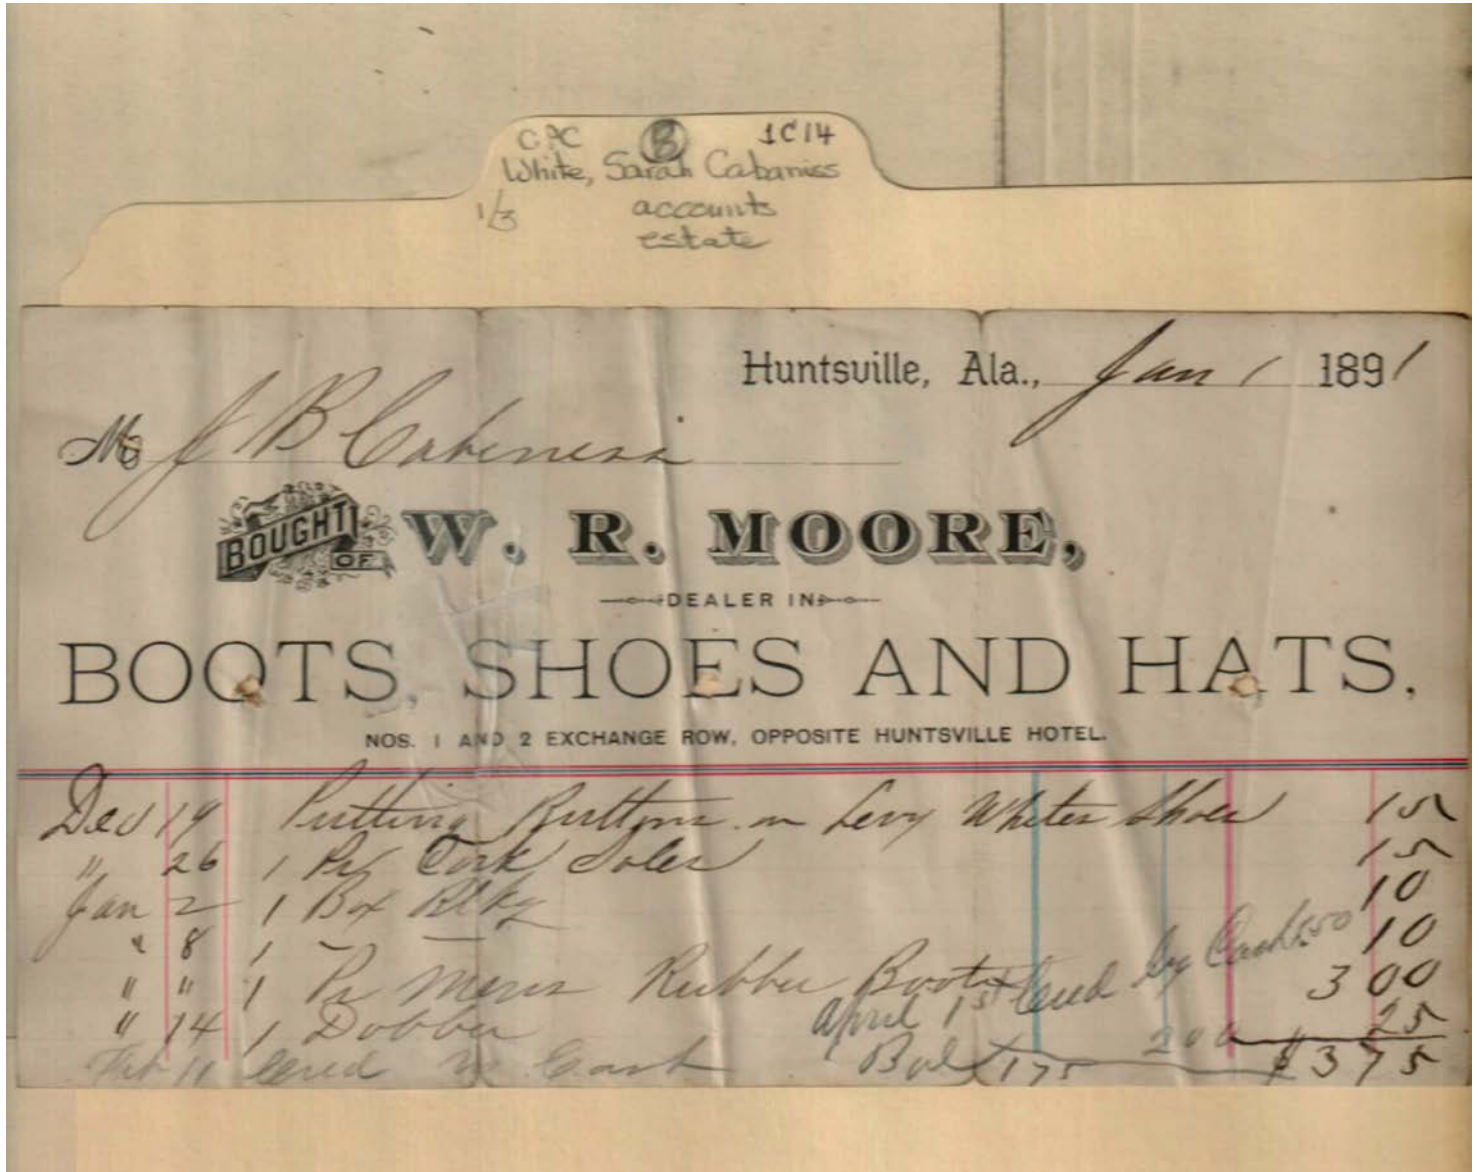 CAC B 1C14
White, Sarah Cabaniss
1/3 accounts
estate
Huntsville, Ala., Jan 1 1891
M J B Cabiness
BOUGHT OF W. R. MOORE,
DEALER IN
BOOTS, SHOES AND HATS,
NOS. 1 AND 2 EXCHANGE ROW, OPPOSITE HUNTSVILLE HOTEL.
Dec 19 Putting Buttons on Levy Whites Shoes 15
" 26 1 Pr Cork Soles 15
Jan 2 1 Box Blkg 10
" 8 1 — — 10
" " 1 Pr Mens Rubber Boots 3 00
April 1st Cred by Cash
" 14 1 Dobber 25
Feb 11 Cred Cash 200 $3 75
Bal 175